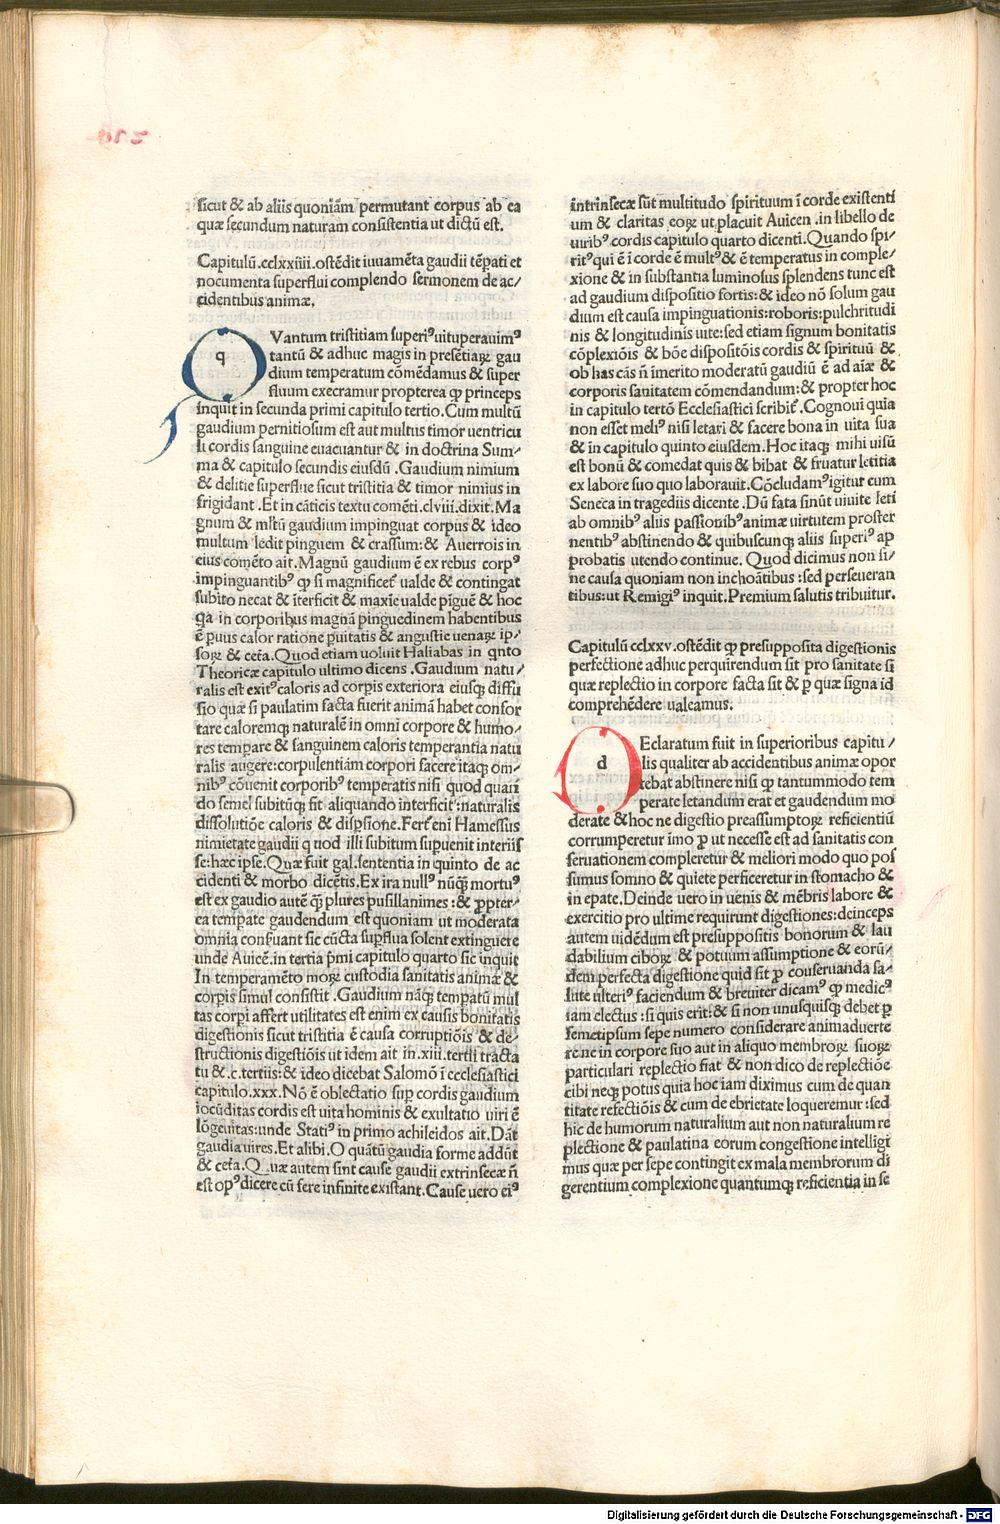 sicut & ab aliis quoniām permutant corpus ab ea
quæ secundum naturam consistentia ut dictū est.
Capitulū.cclxxiiii.ostēdit iuuamēta gaudii tēpati et
nocumenta superflui complendo sermonem de ac/
cidentibus animæ.
q
QVantum tristitiam superiꝰ uituperauimꝰ
tantū & adhuc magis in presētiaꝝ gau
dium temperatum cōmēdamus & super
fluum execramur propterea ꝙ princeps
inquit in secunda primi capitulo tertio.Cum multū
gaudium pernitiosum est aut multus timor uentricu
li cordis sanguine euacuantur & in doctrina Sum/
ma & capitulo secundis eiusdū .Gaudium nimium
& delitie superflue sicut tristitia & timor nimius in
frigidant .Et in cāticis textu comēti.clviii.dixit.Ma
gnum & mltū gaudium impinguat corpus & ideo
multum ledit pinguem & crassum:& Auerrois in
eius comēto ait.Magnū gaudium ē ex rebus corpꝰ
impinguantibꝰ ꝙ si magnificet᷑ ualde & contingat
subito necat & īterficit & maxīe ualde pīguē & hoc
qa in corporibus magnā pinguedinem habentibus
ē puus calor ratione puitatis & angustie uenaꝝ ip/
soꝝ & cet͛a.Quod etiam uoluit Haliabas in qnto
Theoricæ capitulo ultimo dicens .Gaudium natu/
ralis est exitꝰ caloris ad corpis exteriora eiusqꝫ diffu
sio quæ si paulatim facta fuerit animā habet confor
tare caloremqꝫ naturalē in omni corpore & humo/
res tempare & sanguinem caloris temperantia natu
ralis augere:corpulentiām corpori facere itaqꝫ om/
nibꝰ cōuenit corporibꝰ temperatis nisi quod quan
do semel subitūqꝫ fit aliquando interficit :naturalis
dissolutiōe caloris & dispsione.Fert᷑ eni Hamessus
nimietate gaudii q uod illi subitum supuenit interiis
se:hæc ipse.Quæ fuit gal.sententia in quinto de ac
cidenti & morbo dicētis.Ex ira nullꝰ nūqꝫ mortuꝰ
est ex gaudio autē qꝫ plures pusillanimes :& ꝓpter/
ea tempate gaudendum est quoniam ut moderata
omnia conseruant sic cūcta supflua solent extinguere
unde Auicē.in tertia pmi capitulo quarto sic inquit
In temperamēto moꝝ custodia sanitatis animæ &
corpis simul consistit .Gaudium nāqꝫ tempatū mul
tas corpi affert utilitates est enim ex causis bonitatis
digestionis sicut tristitia ē causa corruptiōis & de/
structionis digestiōis ut idem ait in.xiii.tertii tracta
tu &.c.tertiis:& ideo dicebat Salomō ī ecclesiastici
capitulo.xxx.Nō ē oblectatio sup cordis gaudium
iocūditas cordis est uita hominis & exultatio uiri ē
lōgeuitas:unde Statiꝰ in primo achileidos ait.Dāt
gaudia uires.Et alibi.O quātū gaudia forme addūt
& cet͛a.Quæ autem sint cause gaudii extrinsecæ n̄
est opꝰ dicere cū fere infinite existant.Cause uero eiꝰ
intrinsecæ sūt multitudo spirituum ī corde existenti
um & claritas eoꝝ ut placuit Auicen .in libello de
uiribꝰ cordis capitulo quarto dicenti.Quando spi/
ritꝰ qui ē ī corde ē multꝰ & ē temperatus in comple/
xione & in substantia luminosus splendens tunc est
ad gaudium dispositio fortis:& ideo nō solum gau
dium est causa impinguationis:roboris:pulchritudi
nis & longitudinis uite:sed etiam signum bonitatis
cōplexiōis & bōe dispositōis cordis & spirituū &
ob has cās n̄ īmerito moderatū gaudiū ē ad aīæ &
corporis sanitatem cōmendandum:& propter hoc
in capitulo tertō Ecclesiastici scribit᷑. Cognoui quia
non esset meliꝰ nisi letari & facere bona in uita sua
& in capitulo quinto eiusdem.Hoc itaqꝫ mihi uisū
est bonū & comedat quis & bibat & fruatur letitia
ex labore suo quo laborauit.Cōcludamꝰ igitur cum
Seneca in tragediis dicente .Dū fata sinūt uiuite leti
ab omnibꝰ aliis passionibꝰ animæ uirtutem proster
nentibꝰ abstinendo & quibuscunqꝫ aliis superiꝰ ap
probatis utendo continue. Quod dicimus non si/
ne causa quoniam non inchoātibus :sed perseueran
tibus:ut Remigiꝰ inquit.Premium salutis tribuitur.
Capitulū cclxxv.ostēdit ꝙ presupposita digestionis
perfectione adhuc perquirendum sit pro sanitate si
quæ repletio in corpore facta sit & ꝑ quæ signa id
comprehēdere ualeamus.
d
DEclaratum fuit in superioribus capitu /
lis qualiter ab accidentibus animæ opor
tebat abstinere nisi ꝙ tantummodo tem
perate letandum erat et gaudendum mo
derate & hoc ne digestio preassumptoꝝ reficientiū
corrumperetur īmo ꝓ ut necesse est ad sanitatis con
seruationem compleretur & meliori modo quo pos
sumus somno & quiete perficeretur in stomacho &
in epate.Deinde uero in uenis & mēbris labore &
exercitio pro ultime requirunt digestiones:deinceps
autem uidēdum est presuppositis bonorum & lau
dabilium ciboꝝ & potuum assumptione & eorū/
dem perfecta digestione quid sit ꝓ conseruanda sa/
lute ulteriꝰ faciendum & breuiter dicamꝰ ꝙ medicꝰ
iam electus :si quis erit:& si non unusquisqꝫ debet ꝑ
semetipsum sepe numero considerare animaduerte
re ne in corpore suo aut in aliquo membroꝝ suoꝝ
particulari repletio fiat & non dico de repletiōe
cibi neqꝫ potus quia hoc iam diximus cum de quan
titate refectiōis & cum de ebrietate loqueremur :sed
hic de humorum naturalium aut non naturalium re
pletione & paulatina eorum congestione intelligi
mus quæ per sepe contingit ex mala membrorum di
gerentium complexione quantumqꝫ reficientia in se
Digitalisierung gefördert durch die Deutsche Forschungsgemeinschaft - DFG